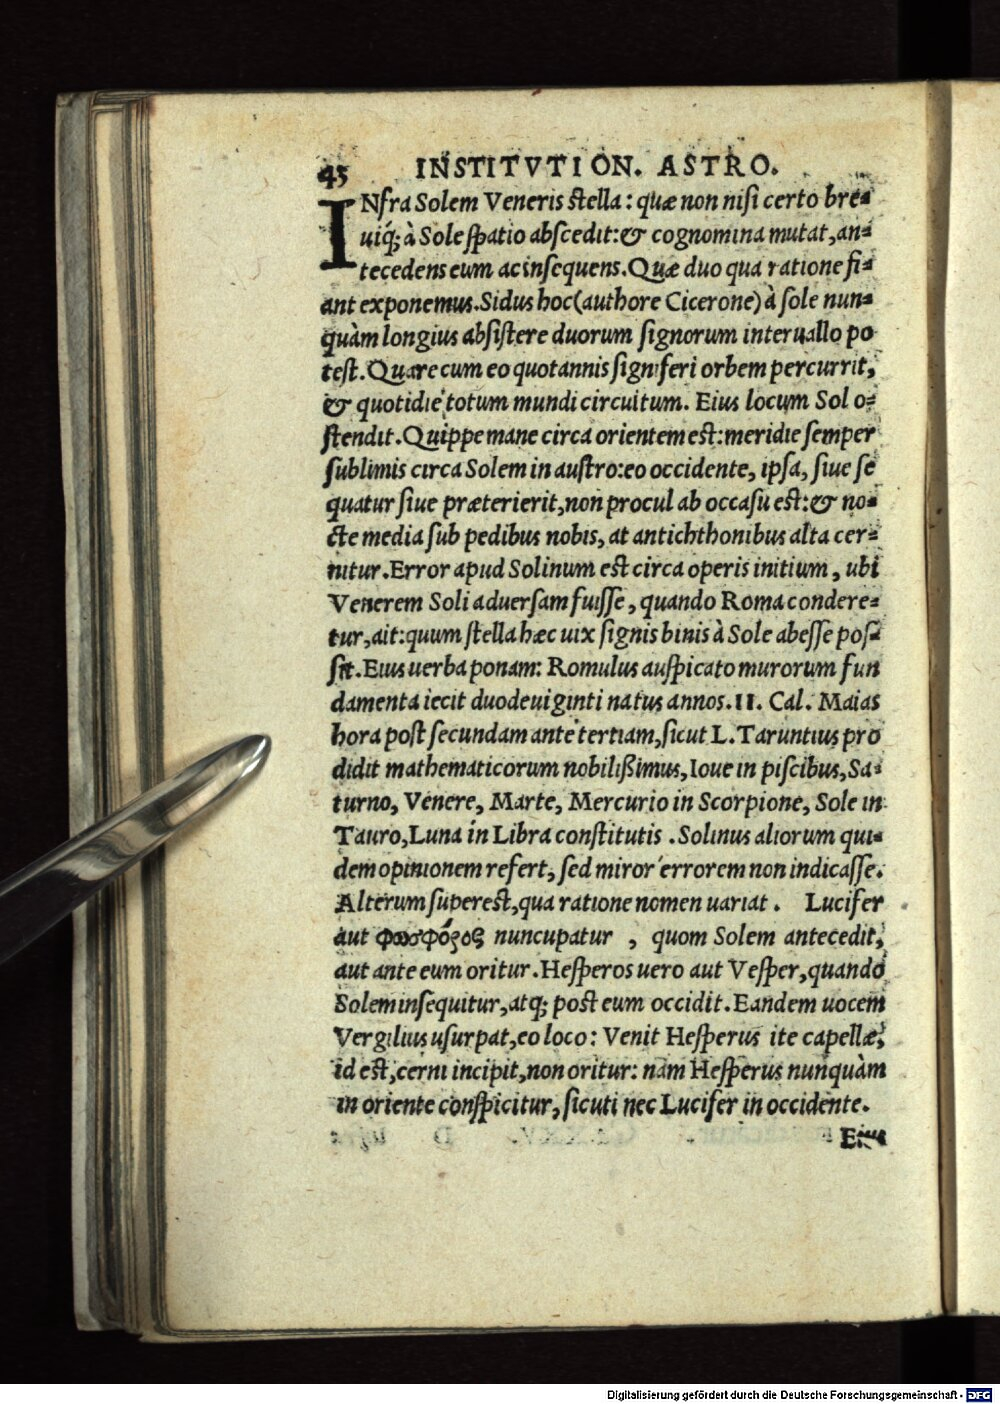 43 INSTITVTION. ASTRO.
INfra Solem Veneris stella: quæ non nisi certo bre=
uiq́; à Sole spatio abscedit:& cognomina mutat, an=
tecedens eum ac insequens. Quæ duo qua ratione fi=
ant exponemus. Sidus hoc (authore Cicerone) à sole nun=
quàm longius absistere duorum signorum interuallo po
test. Quare cum eo quotannis signiferi orbem percurrit,
& quotidie totum mundi circuitum. Eius locum Sol o=
stendit. Quippe mane circa orientem est: meridie semper
sublimis circa Solem in austro: eo occidente, ipsa, siue se
quatur siue præterierit, non procul ab occasu est:& no=
cte media sub pedibus nobis, at antichthonibus alta cer=
nitur. Error apud Solinum est circa operis initium, ubi
Venerem Soli aduersam fuisse, quando Roma condere=
tur, ait: quum stella hæc uix signis binis à Sole abesse pos=
sit. Eius uerba ponam: Romulus auspicato murorum fun
damenta iecit duodeuiginti natus annos. II. Cal. Maias
hora post secundam ante tertiam, sicut L. Taruntius pro
didit mathematicorum nobilißimus, Ioue in piscibus, Sa=
turno, Venere, Marte, Mercurio in Scorpione, Sole in
Tauro, Luna in Libra constitutis. Solinus aliorum qui=
dem opinionem refert, sed miror errorem non indicasse.
Alterum superest, qua ratione nomen uariat. Lucifer
aut φωσφόρος nuncupatur, quom Solem antecedit,
aut ante eum oritur. Hesperos uero aut Vesper, quando
Solem insequitur, atq; post eum occidit. Eandem uocem
Vergilius usurpat, eo loco: Venit Hesperus ite capellæ,
id est, cerni incipit, non oritur: nam Hesperus nunquàm
in oriente conspicitur, sicuti nec Lucifer in occidente.
Eius
Digitalisierung gefördert durch die Deutsche Forschungsgemeinschaft - DFG